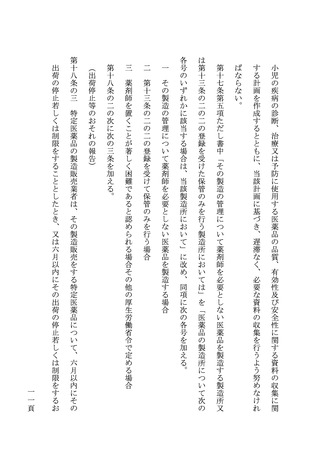 小児の疾病の診断、治療又は予防に使用する医薬品の品質、有効性及び安全性に関する資料の収集に関
する計画を作成するとともに、当該計画に基づき、遅滞なく、必要な資料の収集を行うよう努めなけれ
ばならない。
第十七条第五項ただし書中「その製造の管理について薬剤師を必要としない医薬品を製造する製造所又
は第十三条の二の二の登録を受けた保管のみを行う製造所においては」を「医薬品の製造所について次の
各号のいずれかに該当する場合は、当該製造所において」に改め、同項に次の各号を加える。
一 その製造の管理について薬剤師を必要としない医薬品を製造する場合
二 第十三条の二の二の登録を受けて保管のみを行う場合
三 薬剤師を置くことが著しく困難であると認められる場合その他の厚生労働省令で定める場合
第十八条の二の次に次の三条を加える。
（出荷の停止等のおそれの報告）
第十八条の三 特定医薬品の製造販売業者は、その製造販売をする特定医薬品について、六月以内にその
出荷の停止若しくは制限をすることとしたとき、又は六月以内にその出荷の停止若しくは制限をするお
一一頁